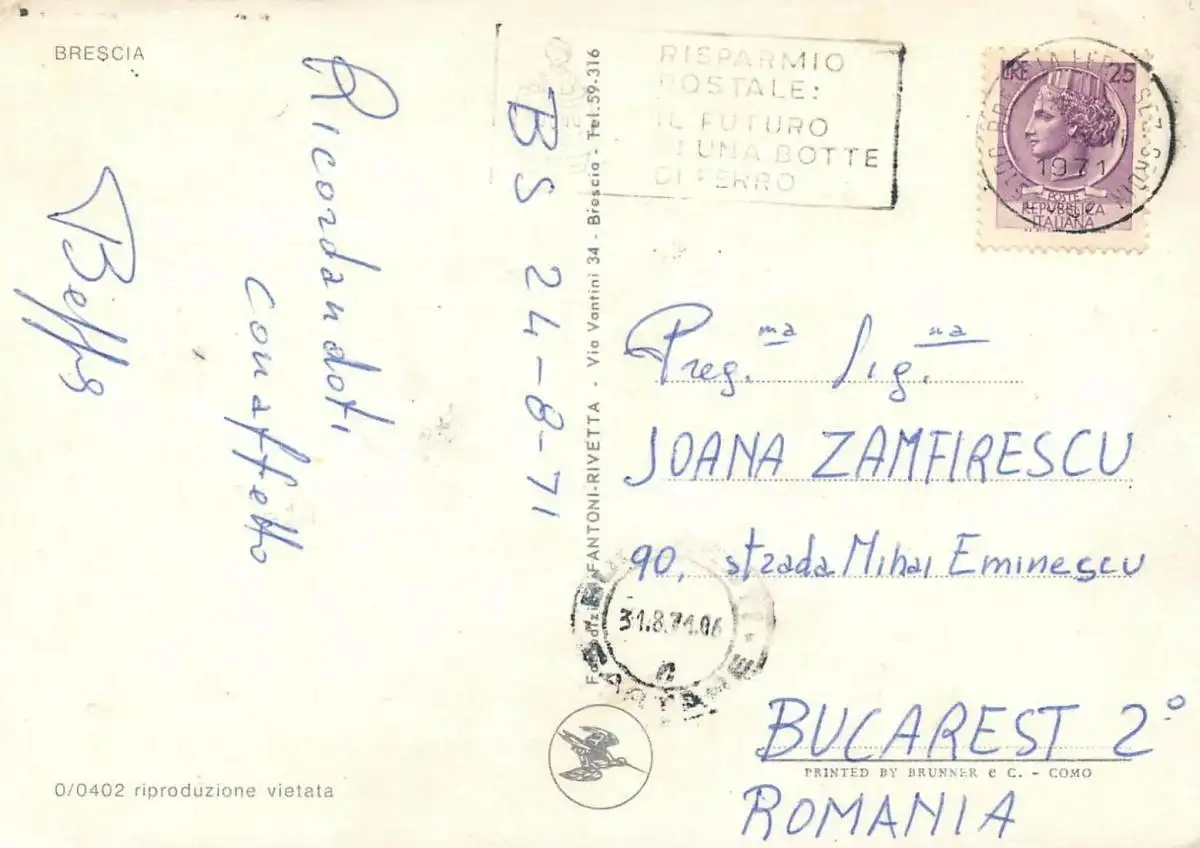 BRESCIA
Ricordandoti
con affetto
Beffa
BS 24-8-71
FANTONI-RIVETTA - Via Vantini 34 - Brescia - Tel. 59-316
RISPARMIO
POSTALE:
IL FUTURO
IN UNA BOTTE
DI FERRO
LIRE 25
1971
POSTE
REPUBBLICA
ITALIANA
Preg.ma Sig.na
JOANA ZAMFIRESCU
90, strada Mihai Eminescu
31.8.71.06
C
BUCAREST 2°
PRINTED BY BRUNNER e C. - COMO
ROMANIA
0/0402 riproduzione vietata